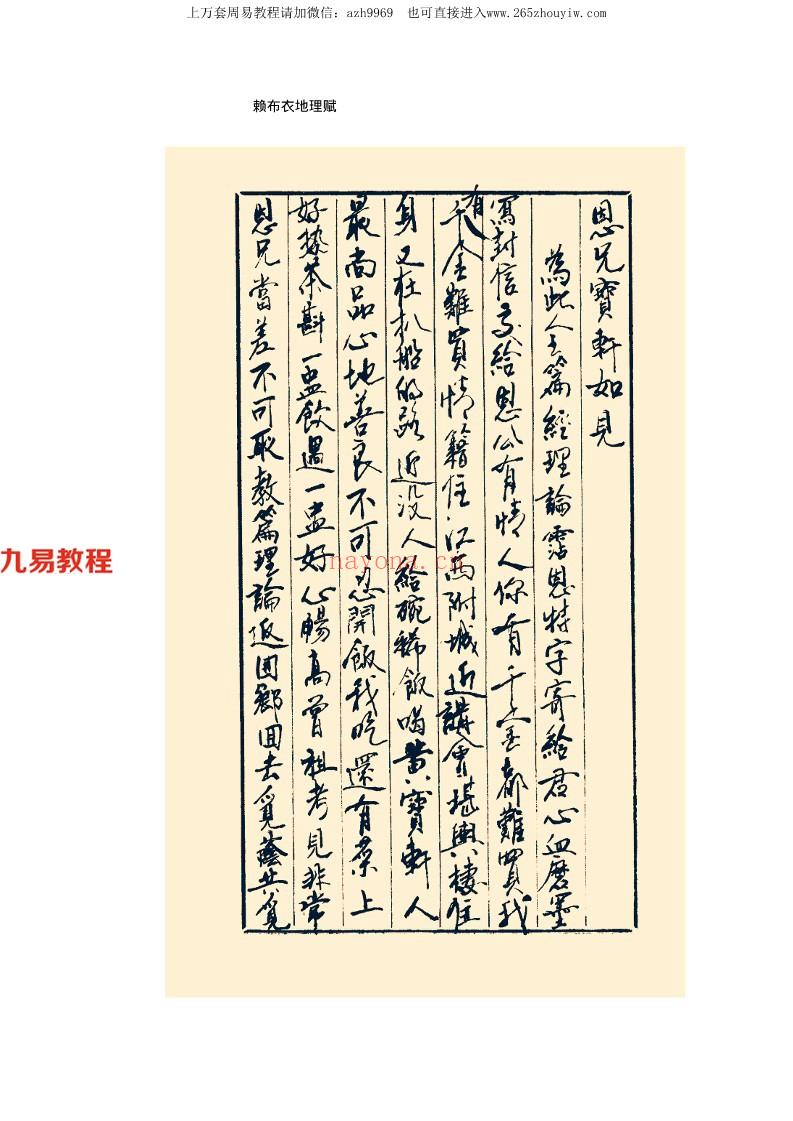 上万套周易教程请加微信：azh9969　也可直接进入www.265zhouyiw.com
赖布衣地理赋
恩兄寶軒如見
為此人王篇經理論靈恩特字寄給君心血磨墨
寫封信交給恩公有情人你有千金都難買我
有千金難買情籍住江西附城近講會堪輿棲住
身又在扒船的路近沒人給碗稀飯喝黄寶軒人
最尚品心地善良不可忍開飯我吃還有菜上
好熱茶斟一盅飲過一盅好心暢高曾祖考見非常
恩兄當差不可取教篇理論返回鄉回去覓蔭共覓
九易教程
nayona.cn